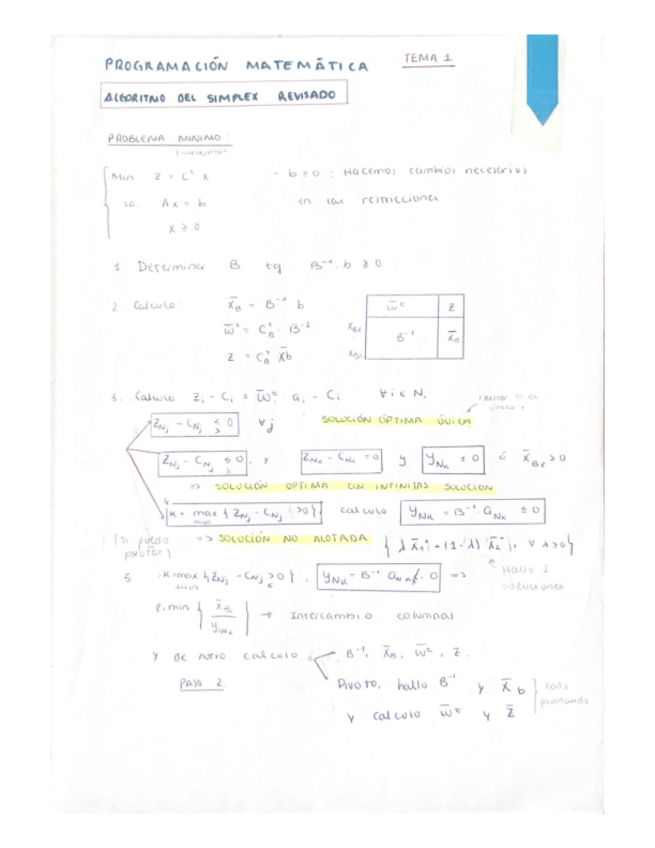 PROGRAMACIÓN MATEMÁTICA TEMA 1
ALGORITMO DEL SIMPLEX REVISADO
PROBLEMA MINIMO:
Min Z = Cᵗ x - b ≥ 0 : Hacemos cambios necesarios
s.a. Ax = b en las restricciones
x ≥ 0
1 Determinar B tq B⁻¹. b ≥ 0
2. Calculo: X̄_B = B⁻¹ b
w̄ᵗ = C_Bᵗ · B⁻¹
Z = C_Bᵗ X̄b
w̄ᵗ Z
X_B1 B⁻¹ X̄_B
3. Calculo Z_i - C_i = w̄ᵗ a_i - C_i ∀ i ∈ N,
Z_Nj - C_Nj ≤ 0 ∀j SOLUCIÓN ÓPTIMA ÚNICA
>
Z_Nj - C_Nj ≤ 0, y Z_Nk - C_Nk = 0 y Y_Nk ≤ 0 ó X̄_Br > 0
>
=> SOLUCIÓN OPTIMA CON INFINITAS SOLUCION
4
K = max { Z_Nj - C_Nj > 0 } calculo Y_Nk = B⁻¹. a_Nk ≤ 0
min
(Si puedo pivotar) => SOLUCIÓN NO ACOTADA { λ X̄₁* + (1-λ) X̄₂*, ∀ λ ≥ 0 }
Hallo 2 soluciones
5. K = max { Z_Nj - C_Nj > 0 }, Y_Nk = B⁻¹ a_Nk ≰ 0 =>
min
min { X̄_Bi / Y_iNk } → Intercambio columnas
y de nuevo calculo B⁻¹, X̄_B, w̄ᵗ, Z.
PASO 2. Pivoto, hallo B⁻¹ y X̄b
y calculo w̄ᵗ y Z̄
todo pivotando